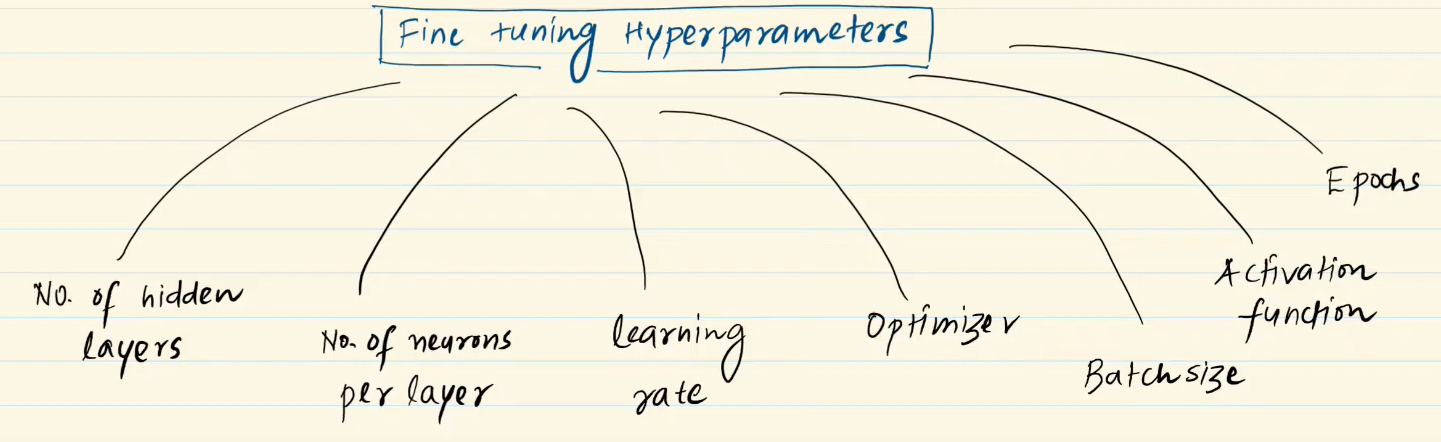 Fine tuning Hyperparameters
No. of hidden
layers
No. of neurons
per layer
learning
rate
Optimizer
Batch size
Activation
function
Epochs